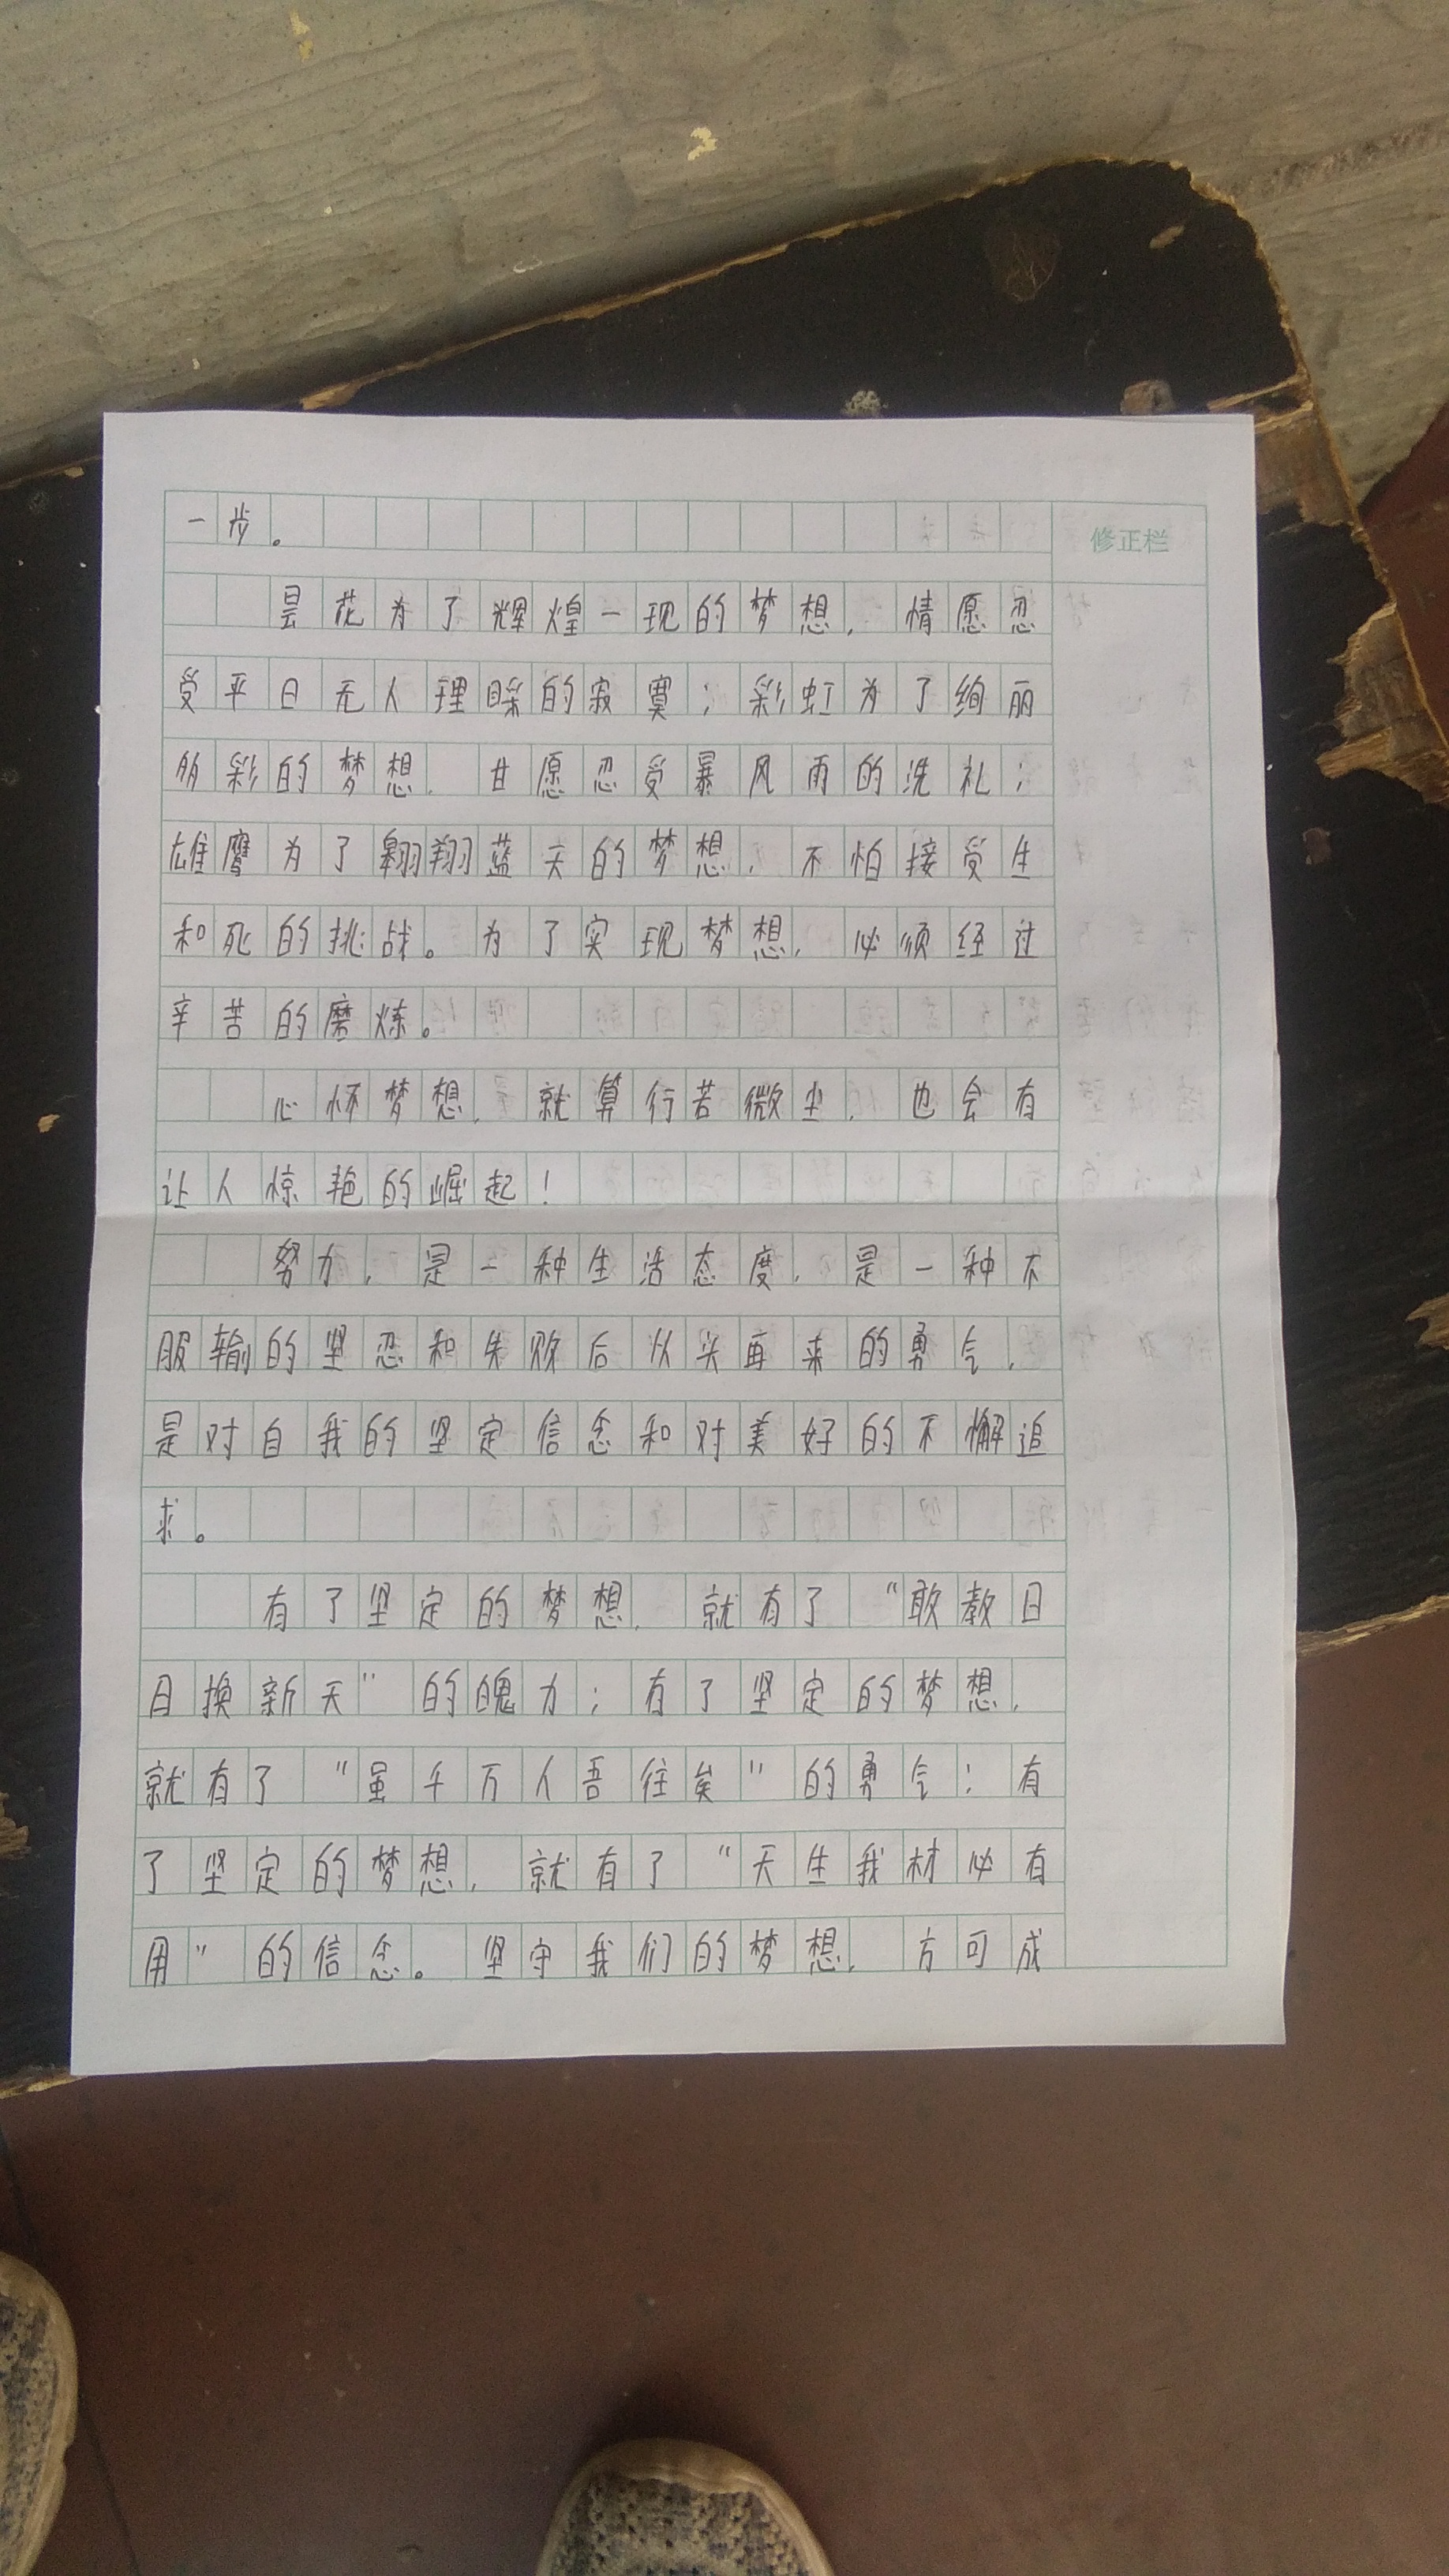 一步。
修正栏
昙花为了辉煌一现的梦想，情愿忍
受平日无人理睬的寂寞；彩虹为了绚丽
多彩的梦想，甘愿忍受暴风雨的洗礼；
雄鹰为了翱翔蓝天的梦想，不怕接受生
和死的挑战。为了实现梦想，必须经过
辛苦的磨炼。
心怀梦想，就算行若微尘，也会有
让人惊艳的崛起！
努力，是一种生活态度，是一种不
服输的坚忍和失败后从头再来的勇气，
是对自我的坚定信念和对美好的不懈追
求。
有了坚定的梦想，就有了“敢教日
月换新天”的魄力；有了坚定的梦想，
就有了“虽千万人吾往矣”的勇气；有
了坚定的梦想，就有了“天生我材必有
用”的信念。坚守我们的梦想，方可成